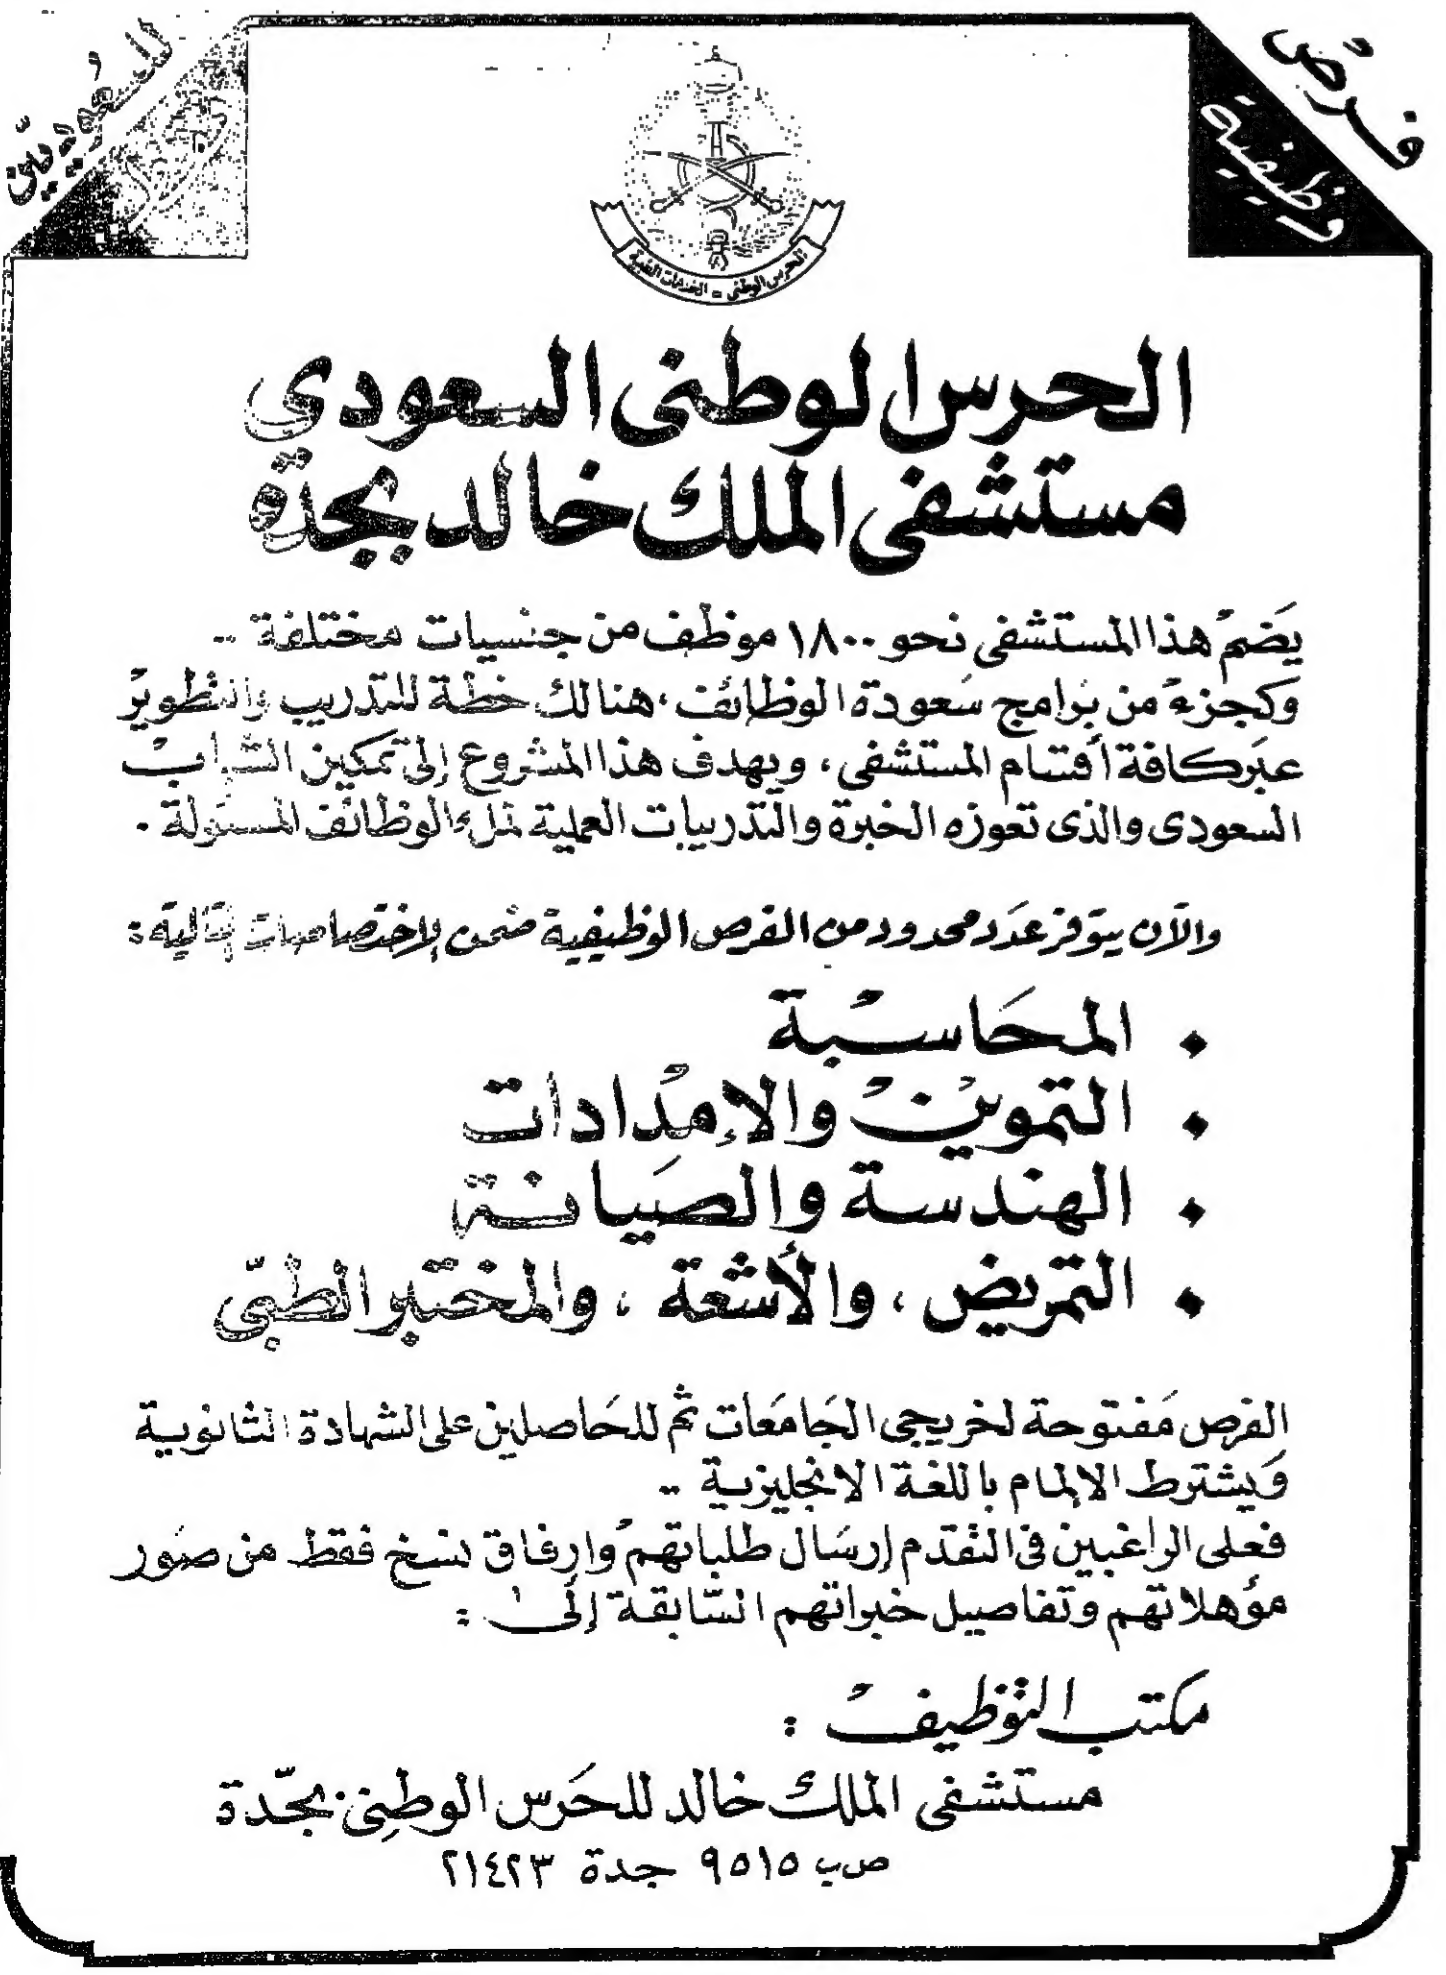 فرص
وظيفية
للسعوديين
الحرس الوطنى - الخدمات الطبية
الحرس الوطنى السعودى
مستشفى الملك خالد بجدة
يَضمُ هذا المستشفى نحو ١٨٠٠ موظف من جنسيات مختلفة ..
وَكجزءٌ من بَرامج سَعودة الوظائف، هنالك خطة للتدريب والتطوير
عبَر كافة أقسَام المستشفى، ويهدف هذا المشروع إلى تمكين الشباب
السعودى والذى تعوزه الخبرة والتدريبات العملية لملء الوظائف المسئولة.
والآن يتوفر عَدد محدود من الفرص الوظيفية ضمن الاختصاصات التالية:
• المحَاسبة
• التموين والإمدادات
• الهندسة والصَيانة
• التمريض، والأشعة، والمختبر الطبّى
الفرص مَفتوحة لخريجى الجَامعَات ثم للحَاصلين على الشهادة الثانوية
وَيشترط الالمام باللغة الانجليزية ..
فعلى الراغبين فى التقدم إرسَال طلباتهم وإرفاق نسخ فقط من صور
مؤهلاتهم وتفاصيل خبراتهم السَّابقة إلى :
مكتب التوظيف :
مستشفى الملك خالد للحَرس الوطنى بجدّة
ص.ب ٩٥١٥ جدة ٢١٤٢٣